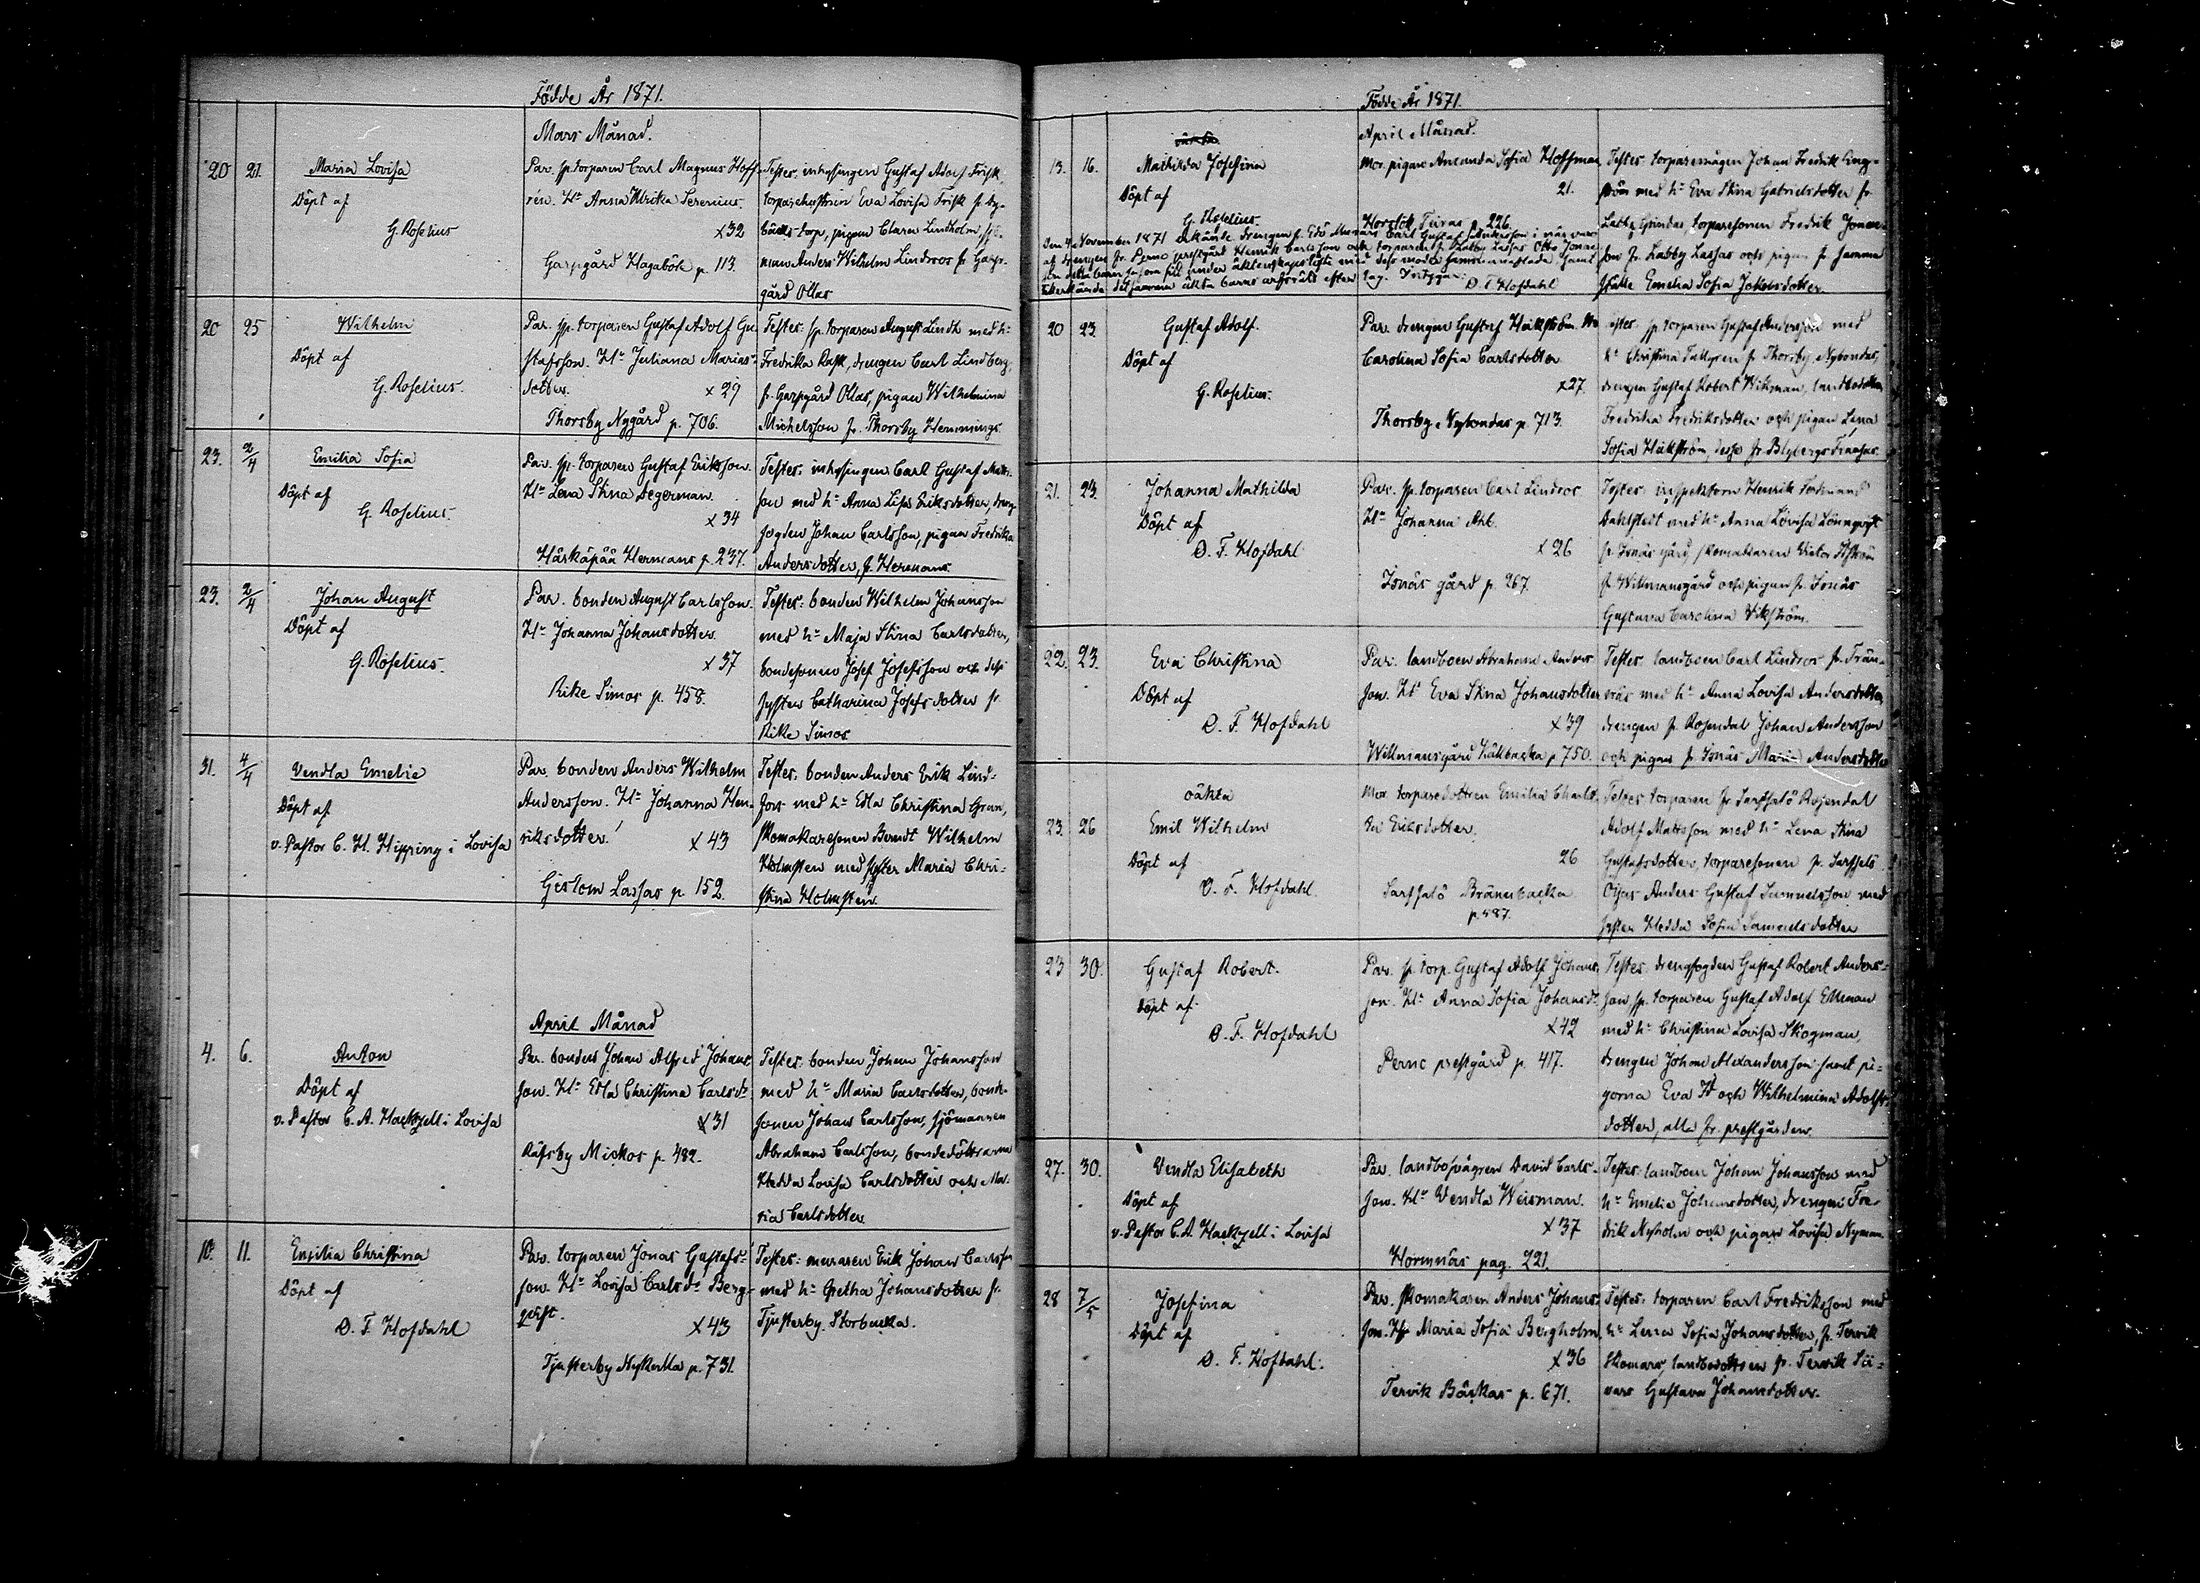 Födde År 1871.
Mars Månad.
20 21. Maria Lovisa
Döpt af
G. Roselius
Par. sp. torparen Carl Magnus Hoff-
rén. Hu Anna Ulrika Serenius
x32
Garpgård Hagaböle p. 113.
Testes: inhysingen Gustaf Adolf Frisk,
torparehustrun Eva Lovisa Frisk fr.
torp, pigan Clara Lindholm,
Anders Wilhelm Lindroos fr. Garp-
gård Ollas
20 25 Wilhelm
Döpt af
G. Roselius.
Par. sp. torparen Gustaf Adolf Gu
stafsson. Hu Juliana Marias-
dotter. x29
Thorsby Nygård p. 706.
Testes: sp. torparen August Lindh med hu
Fredrika Rask, drengen Carl Lindberg,
fr. Garpgård Ollas, pigan Wilhelmina
Michelsson fr. Thorsby Hemmings
23. 2/4 Emilia Sofia
Döpt af
G. Roselius.
Par. sp. torparen Gustaf Eriksson.
Hu Lena Stina Degerman.
x34
Hårkäpää Hermans p. 237.
Testes: inhysingen Carl Gustaf Matts-
son med hu Anna Lisa Eriksdotter, dreng-
fogden Johan Carlsson, pigan Fredrika
Andersdotter, fr. Hermans
23. 2/4 Johan August
Döpt af
G. Roselius.
Par. bonden August Carlsson.
Hu Johanna Johansdotter
x37
Rike Simos p. 458.
Testes: bonden Wilhelm Johansson
med hu Maja Stina Carlsdotter,
bondesonen Josef Josefsson och dess
syster Catharina Josefsdotter fr.
Rike Simos
31. 4/4 Vendla Emelie
Döpt af
v. Pastor C. H. Hipping i Lovisa
Par. bonden Anders Wilhelm
Andersson. Hu Johanna Hen-
riksdotter. x43
Gislom Lassas p 152.
Testes: bonden Anders Erik Lind-
fors med hu Edla Christina Gran,
skomakaresonen Berndt Wilhelm
Holmsten med syster Maria Chri-
stina Holmstén.
April Månad
4. 6. Anton
Döpt af
v. Pastor C. A. Hackzell i Lovisa
Par. bonden Johan Alfred Johans
son. Hu Edla Christina Carlsdr
x31
Räfsby Mickos p. 482.
Testes: bonden Johan Johansson
med hu Maria Carlsdotter, bonde-
sonen Johan Carlsson, sjömannen
Abraham Carlsson, bondedöttrarna
Hedda Lovisa Carlsdotter och Ma-
ria Carlsdotter
10. 11. Emilia Christina
Döpt af
O. F. Hofdahl
Par. torparen Jonas Gustafs-
son. Hu Lovisa Carlsdr Berg-
qvist. x43
Tjusterby Nykulla p. 731.
Testes: muraren Erik Johan Carlsson
med hu Gretha Johansdotter fr.
Tjusterby Storbacka.
Födde År 1871.
April Månad.
13. 16. Mathilda Josefina
Döpt af
G. Roselius.
Mor. pigan Amanda Sofia Hoffman
21.
p 226.
Testes: torparemågen Johan Fredrik Eng-
ström med hu Eva Stina Gabrielsdotter fr.
Labby torparesonen Fredrik Jonas-
son fr. Labby Lassas och pigan fr. samma
ställe Emelia Sofia Jakobsdotter
Den 4 November 1871 erkände drengen Carl Gustaf Andersson i när varo
af drengen fr. Perno prestgård Henrik Carlsson och torparen fr. Labby Lassas Otto Jonas-
son detta barn såsom sitt under äktenskapslöfte med dess moder sammanaflade samt
tillerkände det samma äkta barns arfsrätt efter lag. Intygar O. F. Hofdahl
20 23. Gustaf Adolf.
Döpt af
G. Roselius.
Par. drengen Gustaf Häkström. Hu
Carolina Sofia Carlsdotter
x27.
Thorsby Nybondas p. 713.
Testes: sp. torparen Gustaf Andersson med
hu Christina Tallgren fr. Thorsby Nybondas,
drengen Gustaf Robert Wikman, landbodottern
Fredrika Fredriksdotter och pigan Lena
Sofia Häkström, desse fr. Blybergs
21. 23. Johanna Mathilda
Döpt af
O. F. Hofdahl
Par. sp. torparen Carl Lindroos
Hu Johanna Ahl.
x26
Isnäs gård p. 267.
Testes: inspektoren Henrik Ferdinand
Dahlstedt med hu Anna Lovisa Lönnqvist
fr. Isnäs gård, skomakaren Victor
fr. Willmansgård och pigan fr. Isnäs
Gustava Carolina Vikström.
22. 23. Eva Christina
Döpt af
O. F. Hofdahl
Par. landboen Abraham Anders-
son. Hu Eva Stina Johansdotter
x39
Willmansgård Källbacka p 750.
Testes: landboen Carl Lindroos fr.
med hu Anna Lovisa Andersdotter,
drengen fr. Rosendal Johan Andersson
och pigan fr. Isnäs Maria Andersdotter
23. 26 oäkta
Emil Wilhelm
Döpt af
O. F. Hofdahl
Mor. torparedottren Emilia Charlot-
ta Eriksdotter.
26
Sarfsalö Brännbacka
p. 587.
Testes: torparen fr. Sarfsalö Rosendal
Adolf Mattsson med hu Lena Stina
Gustafsdotter, torparesonen fr. Sarfsalö
Anders Gustaf Samuelsson med
syster Hedda Sofia Samuelsdotter
23 30. Gustaf Robert.
Döpt af
O. F. Hofdahl
Par. sp. torp. Gustaf Adolf Johans-
son. Hu Anna Sofia Johansdr
x42
Perno prestgård p. 417.
Testes: drengfogden Gustaf Robert Anders-
son, sp. torparen Gustaf Adolf Ekman
med hu Christina Lovisa Skogman,
drengen Johan Alexandersson samt pi-
gorna Eva och Wilhelmina Adolfs-
dotter, alla fr. prestgården.
27. 30. Vendla Elisabeth
Döpt af
v. Pastor C. A. Hackzell i Lovisa
Par. landbosvågern David Carls-
son. Hu Vendla Weisman.
x37
Hormnäs pag. 221.
Testes: landboen Johan Johansson med
hu Emelia Johansdotter, drengen Fre-
drik Nyholm och pigan Lovisa Nyman.
28 7/5 Josefina
Döpt af
O. F. Hofdahl.
Par. skomakaren Anders Johans-
son. Hu Maria Sofia Bergholm.
x36
Tervik Bäckas p. 671.
Testes: torparen Carl Fredriksson med
hu Lena Sofia Johansdotter, fr. Tervik
Skomars, landbodottren fr. Tervik
Gustava Johansdotter.